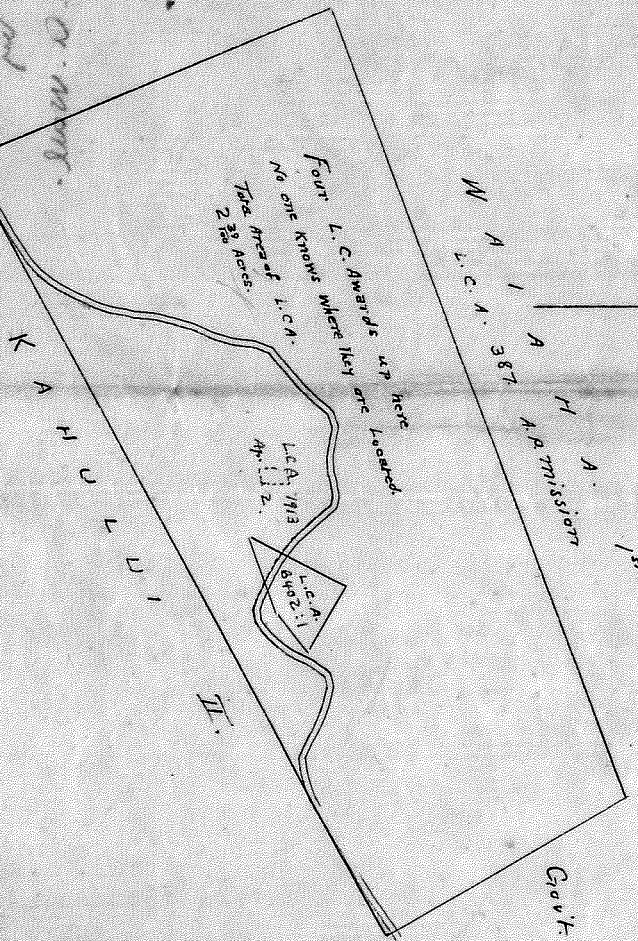 WAIAHA
L.C.A. 387. A.P. Mission
Four L.C. Awards up here
No one knows where they are Located.
Total Area of L.C.A.
2 39/100 Acres.
L.C.A. 7913
Ap. 2.
L.C.A.
8402:1
KAHULUI
II.
Gov't.